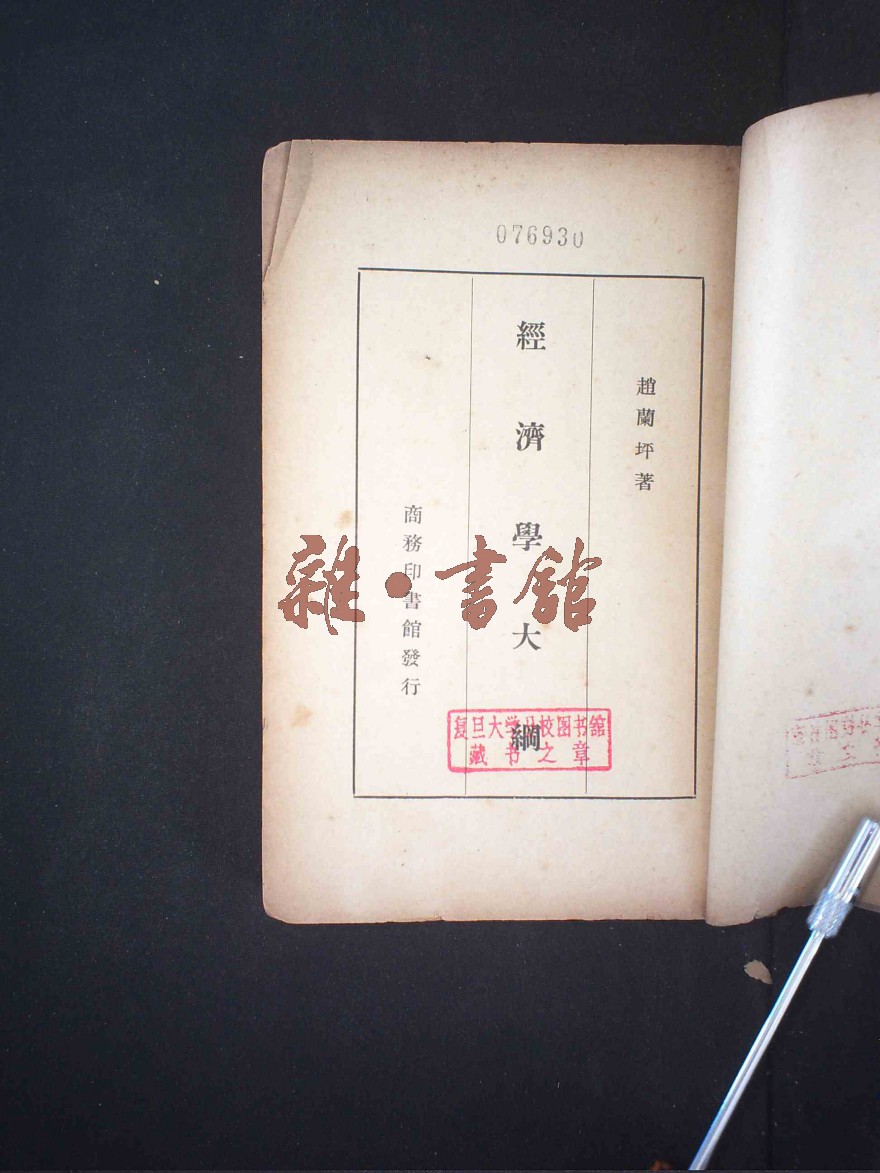 076930
趙蘭坪著
經濟學大綱
商務印書館發行
雜·書館
复旦大学分校图书館
藏书之章